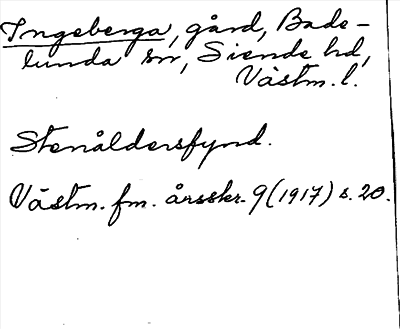 Ingeberga, gård, Bade-
lunda sn, Siende hd,
Västm. l.
Stenåldersfynd.
Västm. fm. årsskr. 9 (1917) s. 20.